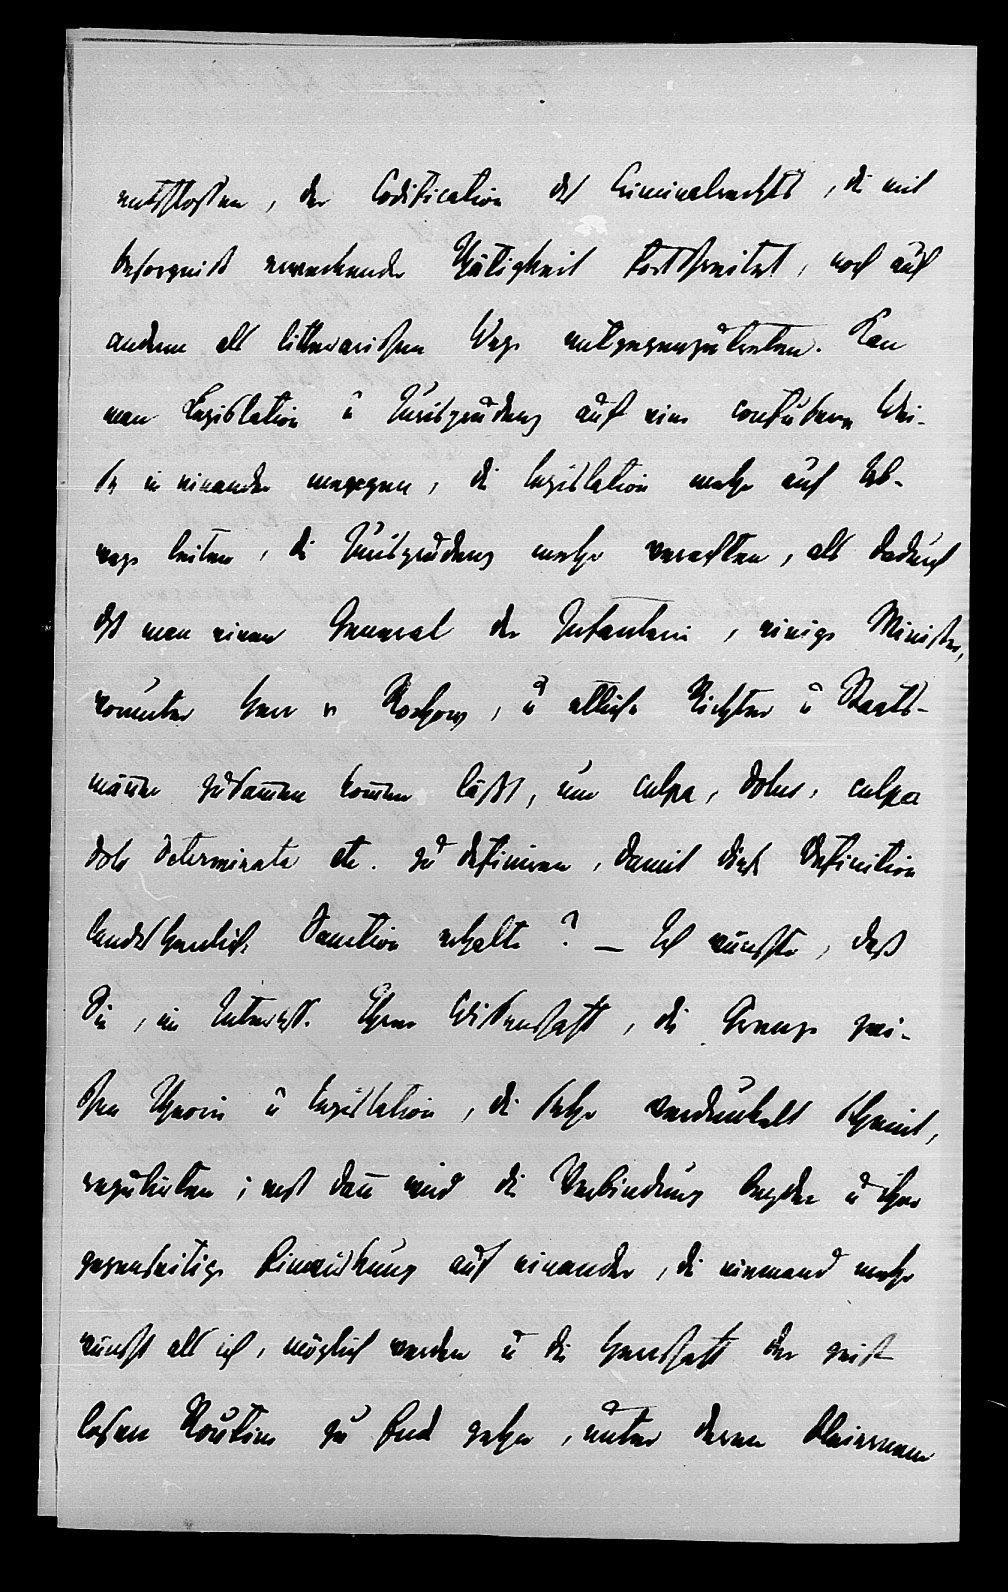 entschlossen, der Codification des Criminalrechts, die mit
besorgniß erweckender Thätigkeit fortschreitet, noch auf
anderem als litterarischem Wege entgegenzutreten. Kan
man Legislation u Jurisprudenz auf eine confusere Wei-
se in einander mengen, die Legislation mehr auf Ab-
wege leiten, die Jurisprudenz mehr verachten, als dadurch
dß man einen General der Infanterie, einige Minister,
worunter Herr v Rochow, u etliche Richter u Staats-
männer zusammen kommen läßt, um culpa, dolus, culpa
dolo determinata etc. zu definiren, damit diese Definition
landesherrliche Sanction erhalte? – Ich wünschte, daß
Sie, im Interesse Ihrer Wissenschaft, die Grenze zwi-
schen Theorie u Legislation, die sehr verdunkelt scheint,
regulirten; erst dann wird die Verbindung beyder u ihre
gegenseitige Einwirkung auf einander, die niemand mehr
wünscht als ich, möglich werden u die Herrschaft der geist-
losen Routine zu End gehen, unter deren